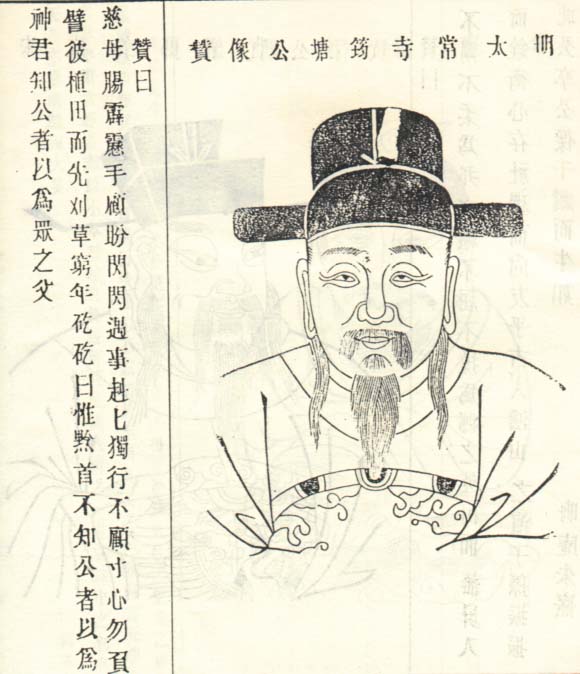 明太常寺筠塘公像贊
贊曰
慈母腸霹靂手顧盼閃閃遇事赳匕獨行不顧寸心勿負
譬彼植田而先刈草窮年矻矻曰惟黔首不知公者以爲
神君知公者以爲眾之父